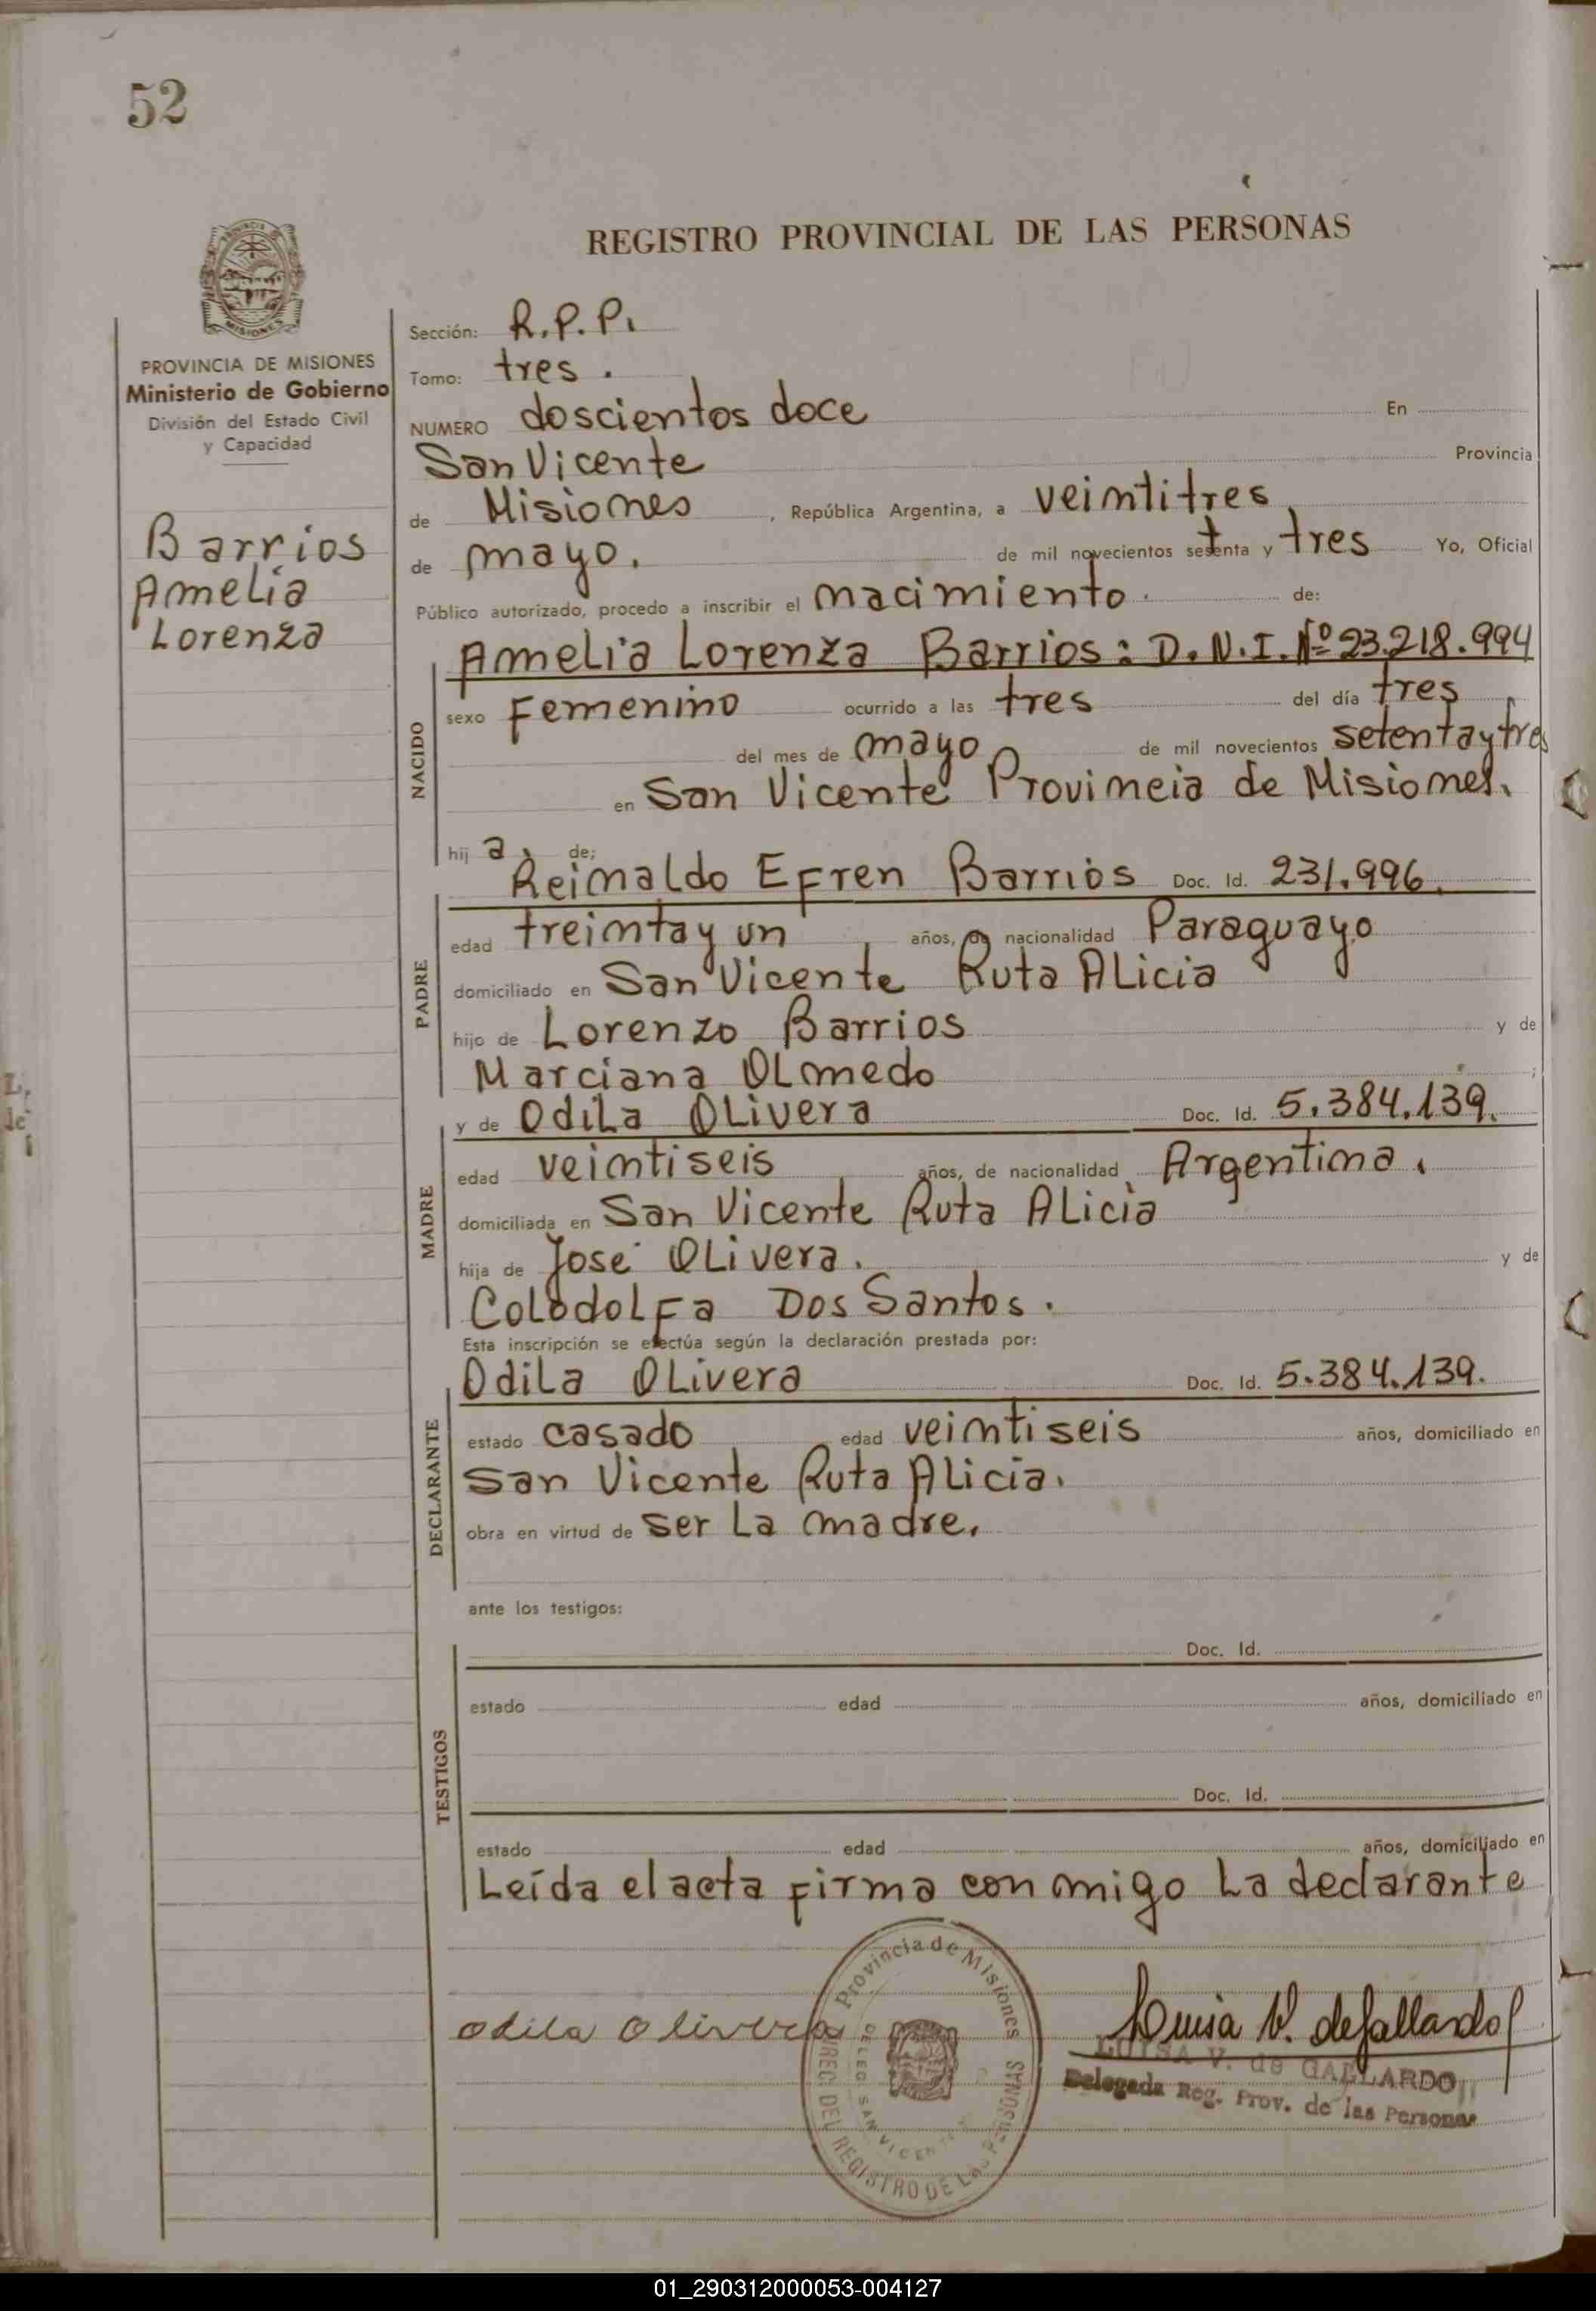 52
REGISTRO PROVINCIAL DE LAS PERSONAS
MISIONES
PROVINCIA DE MISIONES
Ministerio de Gobierno
División del Estado Civil
y Capacidad
Barrios
Amelia
Lorenza
Sección: R.P.P.
Tomo: tres.
NUMERO doscientos doce En
San Vicente Provincia
de Misiones, República Argentina, a veintitres
de mayo. de mil novecientos setenta y tres Yo, Oficial
Público autorizado, procedo a inscribir el nacimiento. de:
NACIDO
Amelia Lorenza Barrios: D.N.I. Nº 23.218.994
sexo Femenino ocurrido a las tres del día tres
del mes de mayo de mil novecientos setenta y tres
en San Vicente Provincia de Misiones.
hija. de:
PADRE
Reinaldo Efren Barrios Doc. Id. 231.996.
edad treinta y un años, de nacionalidad Paraguayo
domiciliado en San Vicente Ruta Alicia
hijo de Lorenzo Barrios y de
Marciana Olmedo ;
MADRE
y de Odila Olivera Doc. Id. 5.384.139.
edad veintiseis años, de nacionalidad Argentina.
domiciliada en San Vicente Ruta Alicia
hija de José Olivera. y de
Colodolfa Dos Santos.
Esta inscripción se efectúa según la declaración prestada por:
DECLARANTE
Odila Olivera Doc. Id. 5.384.139.
estado casado edad veintiseis años, domiciliado en
San Vicente Ruta Alicia.
obra en virtud de ser la madre.
ante los testigos:
TESTIGOS
Doc. Id.
estado edad años, domiciliado en
Doc. Id.
estado edad años, domiciliado en
Leída el acta firma con migo la declarante
Odila Olivera
Luisa V. de Gallardo
LUISA V. de GALLARDO
Delegada Reg. Prov. de las Personas
Provincia de Misiones
DIREC. DEL REGISTRO DE LAS PERSONAS
DELEG. SAN VICENTE
01_290312000053-004127